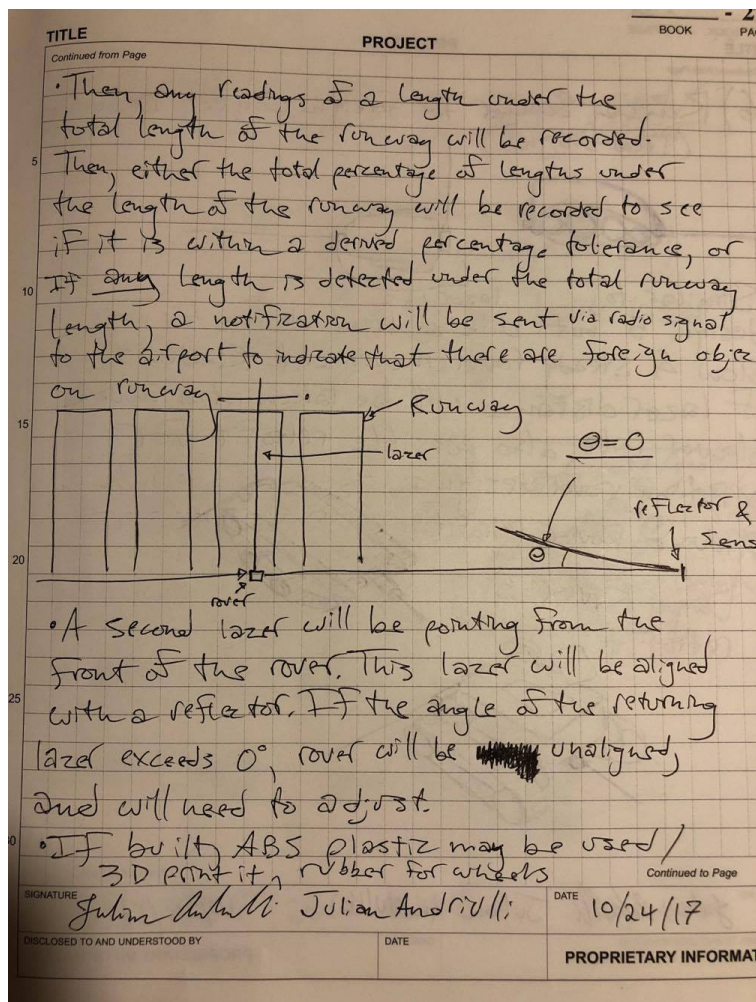 - 2
BOOK
PA
TITLE
PROJECT
Continued from Page
• Then, any readings of a length under the
total length of the runway will be recorded.
5
Then, either the total percentage of lengths under
the length of the runway will be recorded to see
if it is within a derived percentage tolerance, or
10
If any length is detected under the total runway
length, a notification will be sent via radio signal
to the airport to indicate that there are foreign objec
on runway
15
Runway
lazer
θ=0
reflector &
sens
θ
20
rover
• A second lazer will be pointing from the
front of the rover. This lazer will be aligned
25
with a reflector. If the angle of the returning
lazer exceeds 0°, rover will be unaligned,
and will need to adjust.
30
• If built, ABS plastic may be used /
3D print it, rubber for wheels
Continued to Page
SIGNATURE
Julian Andriulli
DATE
10/24/17
DISCLOSED TO AND UNDERSTOOD BY
DATE
PROPRIETARY INFORMAT